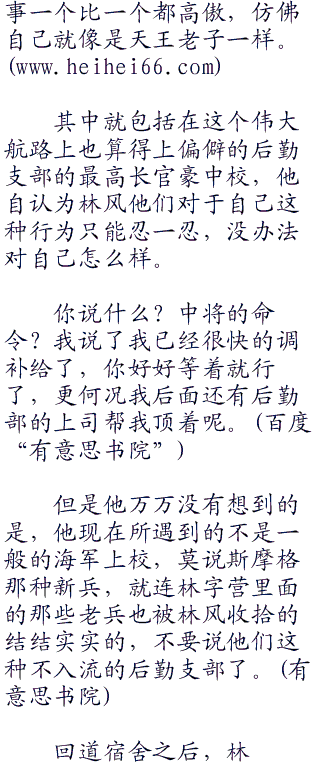 事一个比一个都高傲，仿佛
自己就像是天王老子一样。
(www.heihei66.com)
其中就包括在这个伟大
航路上也算得上偏僻的后勤
支部的最高长官豪中校，他
自认为林风他们对于自己这
种行为只能忍一忍，没办法
对自己怎么样。
你说什么？中将的命
令？我说了我已经很快的调
补给了，你好好等着就行
了，更何况我后面还有后勤
部的上司帮我顶着呢。(百度
“有意思书院”)
但是他万万没有想到的
是，他现在所遇到的不是一
般的海军上校，莫说斯摩格
那种新兵，就连林字营里面
的那些老兵也被林风收拾的
结结实实的，不要说他们这
种不入流的后勤支部了。(有
意思书院)
回道宿舍之后，林